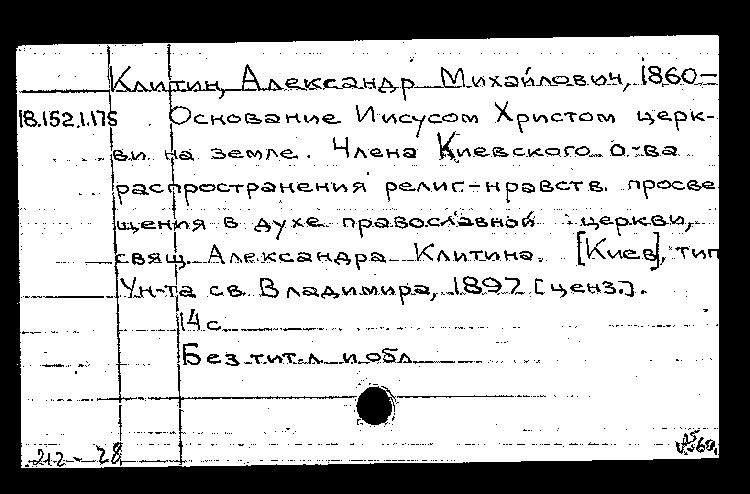 Клитин, Александр Михайлович, 1860–
18.152.1.175 Основание Иисусом Христом церк-
ви на земле. Члена Киевского о-ва
распространения религ-нравств. просве
щения в духе православной церкви,
свящ. Александра Клитина. [Киев], тип
Ун-та св. Владимира, 1897 [ценз.].
14 с
Без тит. л и обл
212 - 28